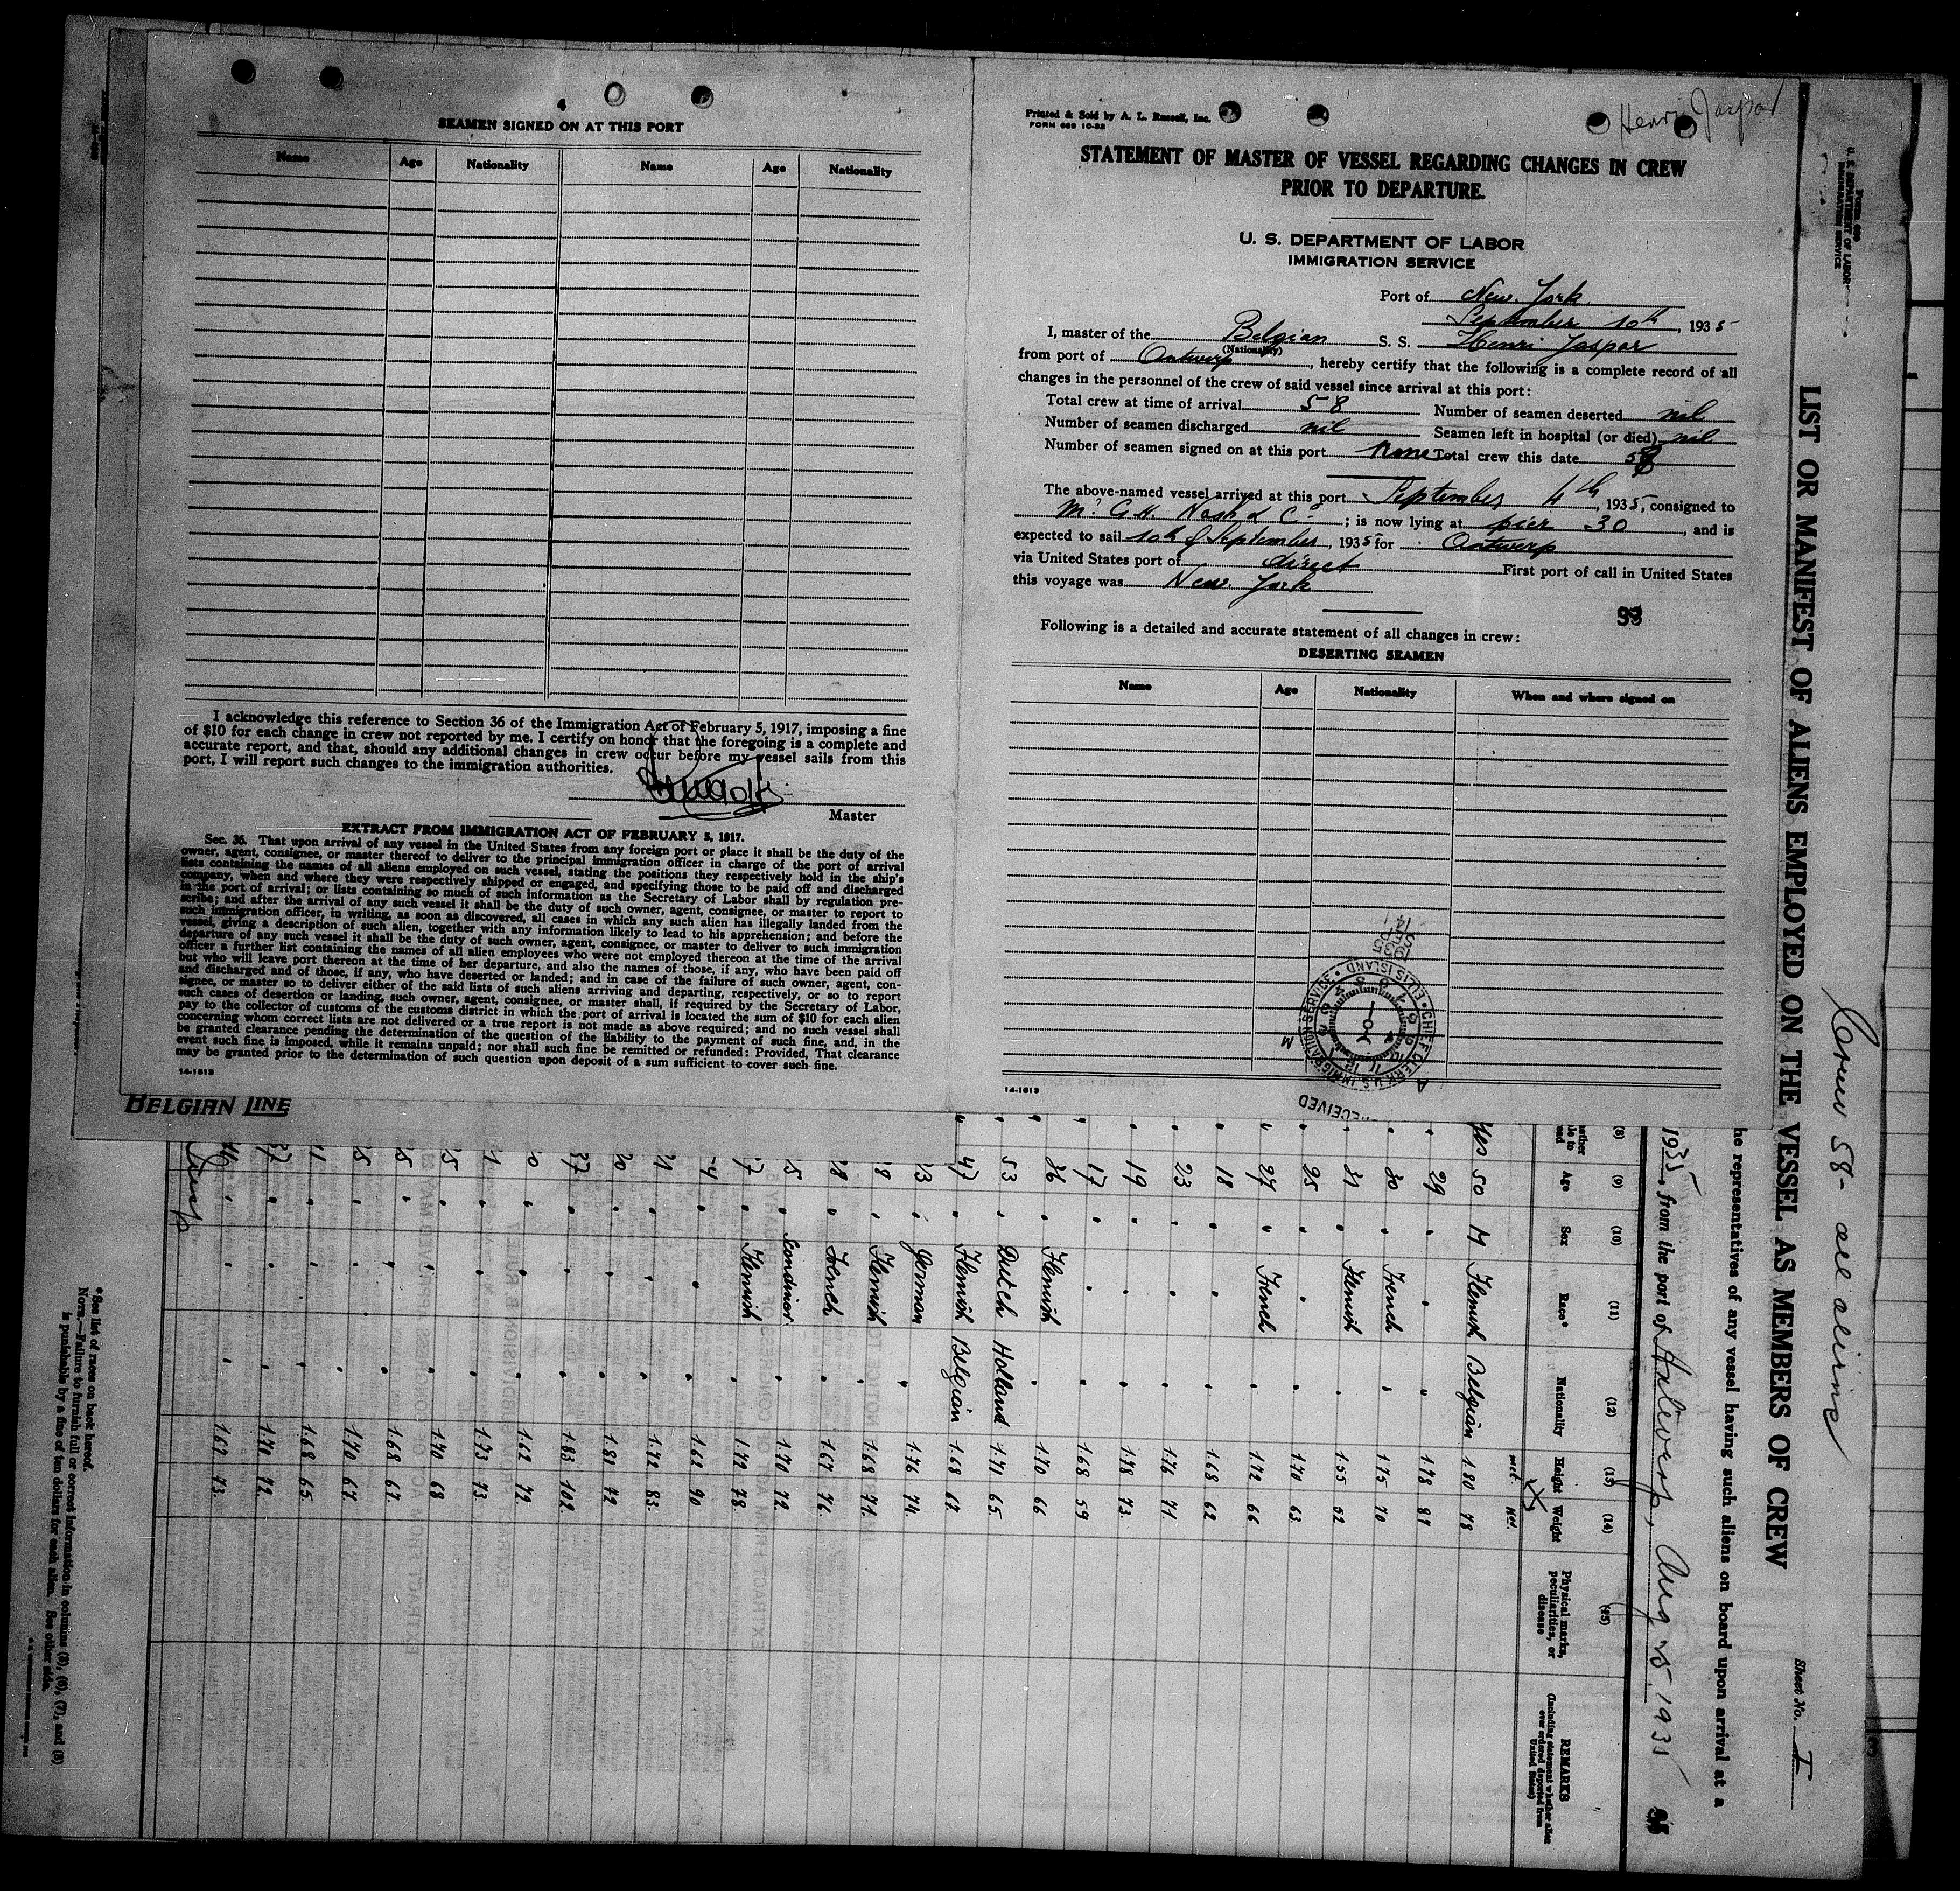 SEAMEN SIGNED ON AT THIS PORT
Name Age Nationality Name Age Nationality
I acknowledge this reference to Section 36 of the Immigration Act of February 5, 1917, imposing a fine
of $10 for each change in crew not reported by me. I certify on honor that the foregoing is a complete and
accurate report, and that, should any additional changes in crew occur before my vessel sails from this
port, I will report such changes to the immigration authorities.
Master
EXTRACT FROM IMMIGRATION ACT OF FEBRUARY 5, 1917.
Sec. 36. That upon arrival of any vessel in the United States from any foreign port or place it shall be the duty of the
owner, agent, consignee, or master thereof to deliver to the principal immigration officer in charge of the port of arrival
lists containing the names of all aliens employed on such vessel, stating the positions they respectively hold in the ship's
company, when and where they were respectively shipped or engaged, and specifying those to be paid off and discharged
in the port of arrival; or lists containing so much of such information as the Secretary of Labor shall by regulation pre-
scribe; and after the arrival of any such vessel it shall be the duty of such owner, agent, consignee, or master to report to
such immigration officer, in writing, as soon as discovered, all cases in which any such alien has illegally landed from the
vessel, giving a description of such alien, together with any information likely to lead to his apprehension; and before the
departure of any such vessel it shall be the duty of such owner, agent, consignee, or master to deliver to such immigration
officer a further list containing the names of all alien employees who were not employed thereon at the time of the arrival
but who will leave port thereon at the time of her departure, and also the names of those, if any, who have been paid off
and discharged and of those, if any, who have deserted or landed; and in case of the failure of such owner, agent, con-
signee, or master so to deliver either of the said lists of such aliens arriving and departing, respectively, or so to report
such cases of desertion or landing, such owner, agent, consignee, or master shall, if required by the Secretary of Labor,
pay to the collector of customs of the customs district in which the port of arrival is located the sum of $10 for each alien
concerning whom correct lists are not delivered or a true report is not made as above required; and no such vessel shall
be granted clearance pending the determination of the question of the liability to the payment of such fine, and, in the
event such fine is imposed, while it remains unpaid; nor shall such fine be remitted or refunded: Provided, That clearance
may be granted prior to the determination of such question upon deposit of a sum sufficient to cover such fine.
14-1613
BELGIAN LINE
Henri Jaspar
Printed & Sold by A. L. Russell, Inc.
FORM 689 10-32
STATEMENT OF MASTER OF VESSEL REGARDING CHANGES IN CREW
PRIOR TO DEPARTURE.
U. S. DEPARTMENT OF LABOR
IMMIGRATION SERVICE
Port of New York
September 10th, 1935
I, master of the Belgian S. S. Henri Jaspar
(Nationality)
from port of Antwerp, hereby certify that the following is a complete record of all
changes in the personnel of the crew of said vessel since arrival at this port:
Total crew at time of arrival 58 Number of seamen deserted nil
Number of seamen discharged nil Seamen left in hospital (or died) nil
Number of seamen signed on at this port None Total crew this date 58
The above-named vessel arrived at this port September 4th, 1935, consigned to
Mr G.H. Nash & Co; is now lying at pier 30, and is
expected to sail 10th of September, 1935 for Antwerp
via United States port of direct First port of call in United States
this voyage was New York
93
Following is a detailed and accurate statement of all changes in crew:
DESERTING SEAMEN
Name Age Nationality When and where signed on
RECEIVED
CHIEF CLERK U.S. IMMIGRATION SERVICE • ELLIS ISLAND
14-1613
Crew 58- all aliens
U. S. DEPARTMENT OF LABOR
IMMIGRATION SERVICE
Sheet No. I
LIST OR MANIFEST OF ALIENS EMPLOYED ON THE VESSEL AS MEMBERS OF CREW
he representatives of any vessel having such aliens on board upon arrival at a
1935, from the port of Antwerp, Aug 25 1935
(8) (9) (10) (11) (12) (13) (14) (15)
Age Sex Race* Nationality Height Weight Physical marks, peculiarities, or disease REMARKS
(Including statement whether alien ever ordered deported from United States)
Yes 50 M Flemish Belgian 1.80 78
29 " " " 1.78 87
30 " French " 1.75 70
31 " Flemish " 1.55 52
25 " " " 1.70 63
27 " French " 1.72 66
18 " " " 1.68 62
23 " " " 1.76 71
19 " " " 1.78 73
17 " " " 1.68 59
36 " Flemish " 1.70 66
53 " Dutch Holland 1.71 65
47 " Flemish Belgian 1.68 67
German " 1.76 74
Flemish " 1.68 71
French " 1.67 76
1.70 72
Flemish " 1.72 78
1.62 90
1.72 83
1.81 72
1.83 102
1.62 72
1.73 73
1.70 68
1.68 67
1.70 67
1.68 65
1.78 72
1.67 73
* See list of races on back hereof.
NOTE.—Failure to furnish full or correct information in columns (3), (6), (7), and (8)
is punishable by a fine of ten dollars for each alien. See other side.